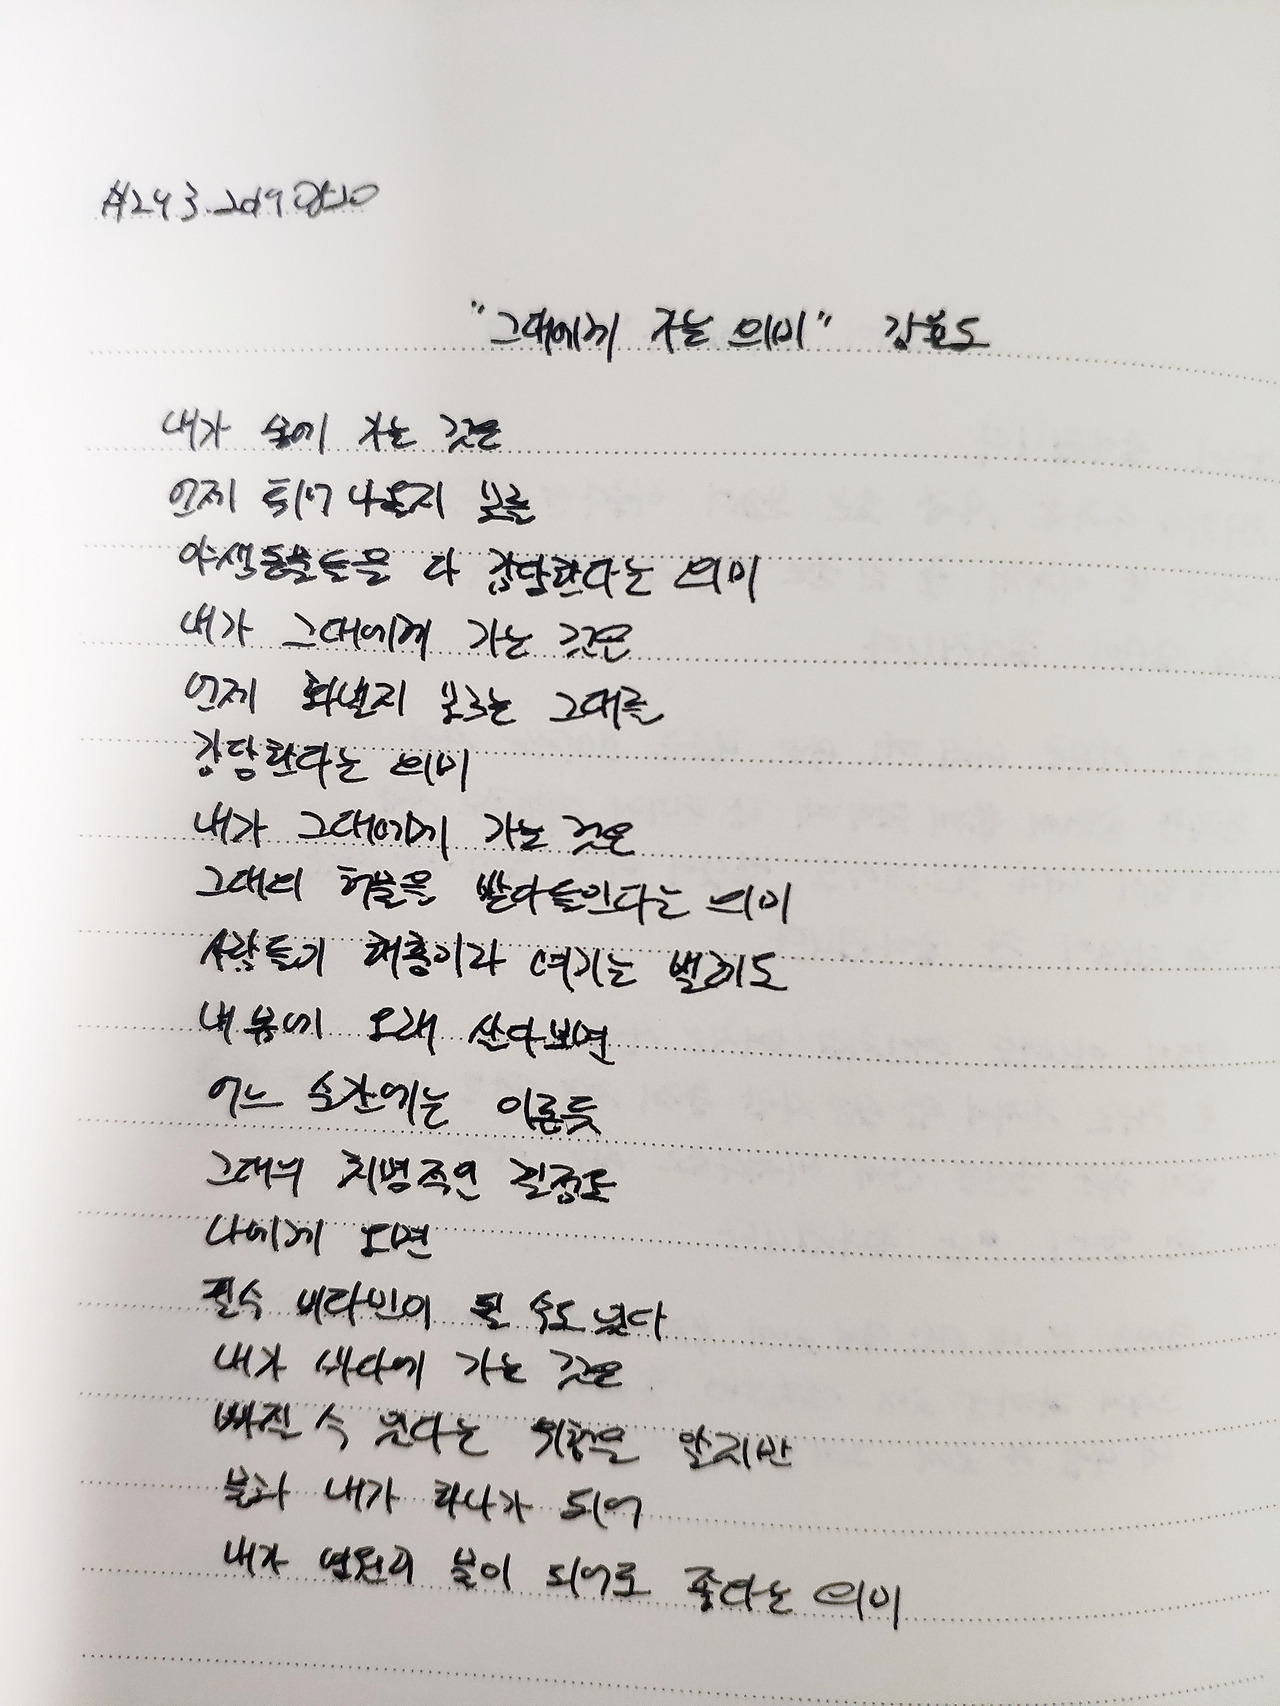 #243. 2019 0520
"그대에게 가는 의미" 강보도
내가 숲에 가는 것은
언제 튀어 나올지 모를
야생동물들을 다 감당한다는 의미
내가 그대에게 가는 것은
언제 화낼지 모르는 그대를
감당한다는 의미
내가 그대에게 가는 것은
그대의 허물을 받아들인다는 의미
사람들이 해충이라 여기는 벌레도
내 몸에 오래 산다보면
어느 순간에는 이롭듯
그대의 치명적인 결점도
나에게 오면
필수 비타민이 될 수도 있다
내가 바다에 가는 것은
빠질 수 있다는 위험을 알지만
물과 내가 하나가 되어
내가 영원히 물이 되어도 좋다는 의미